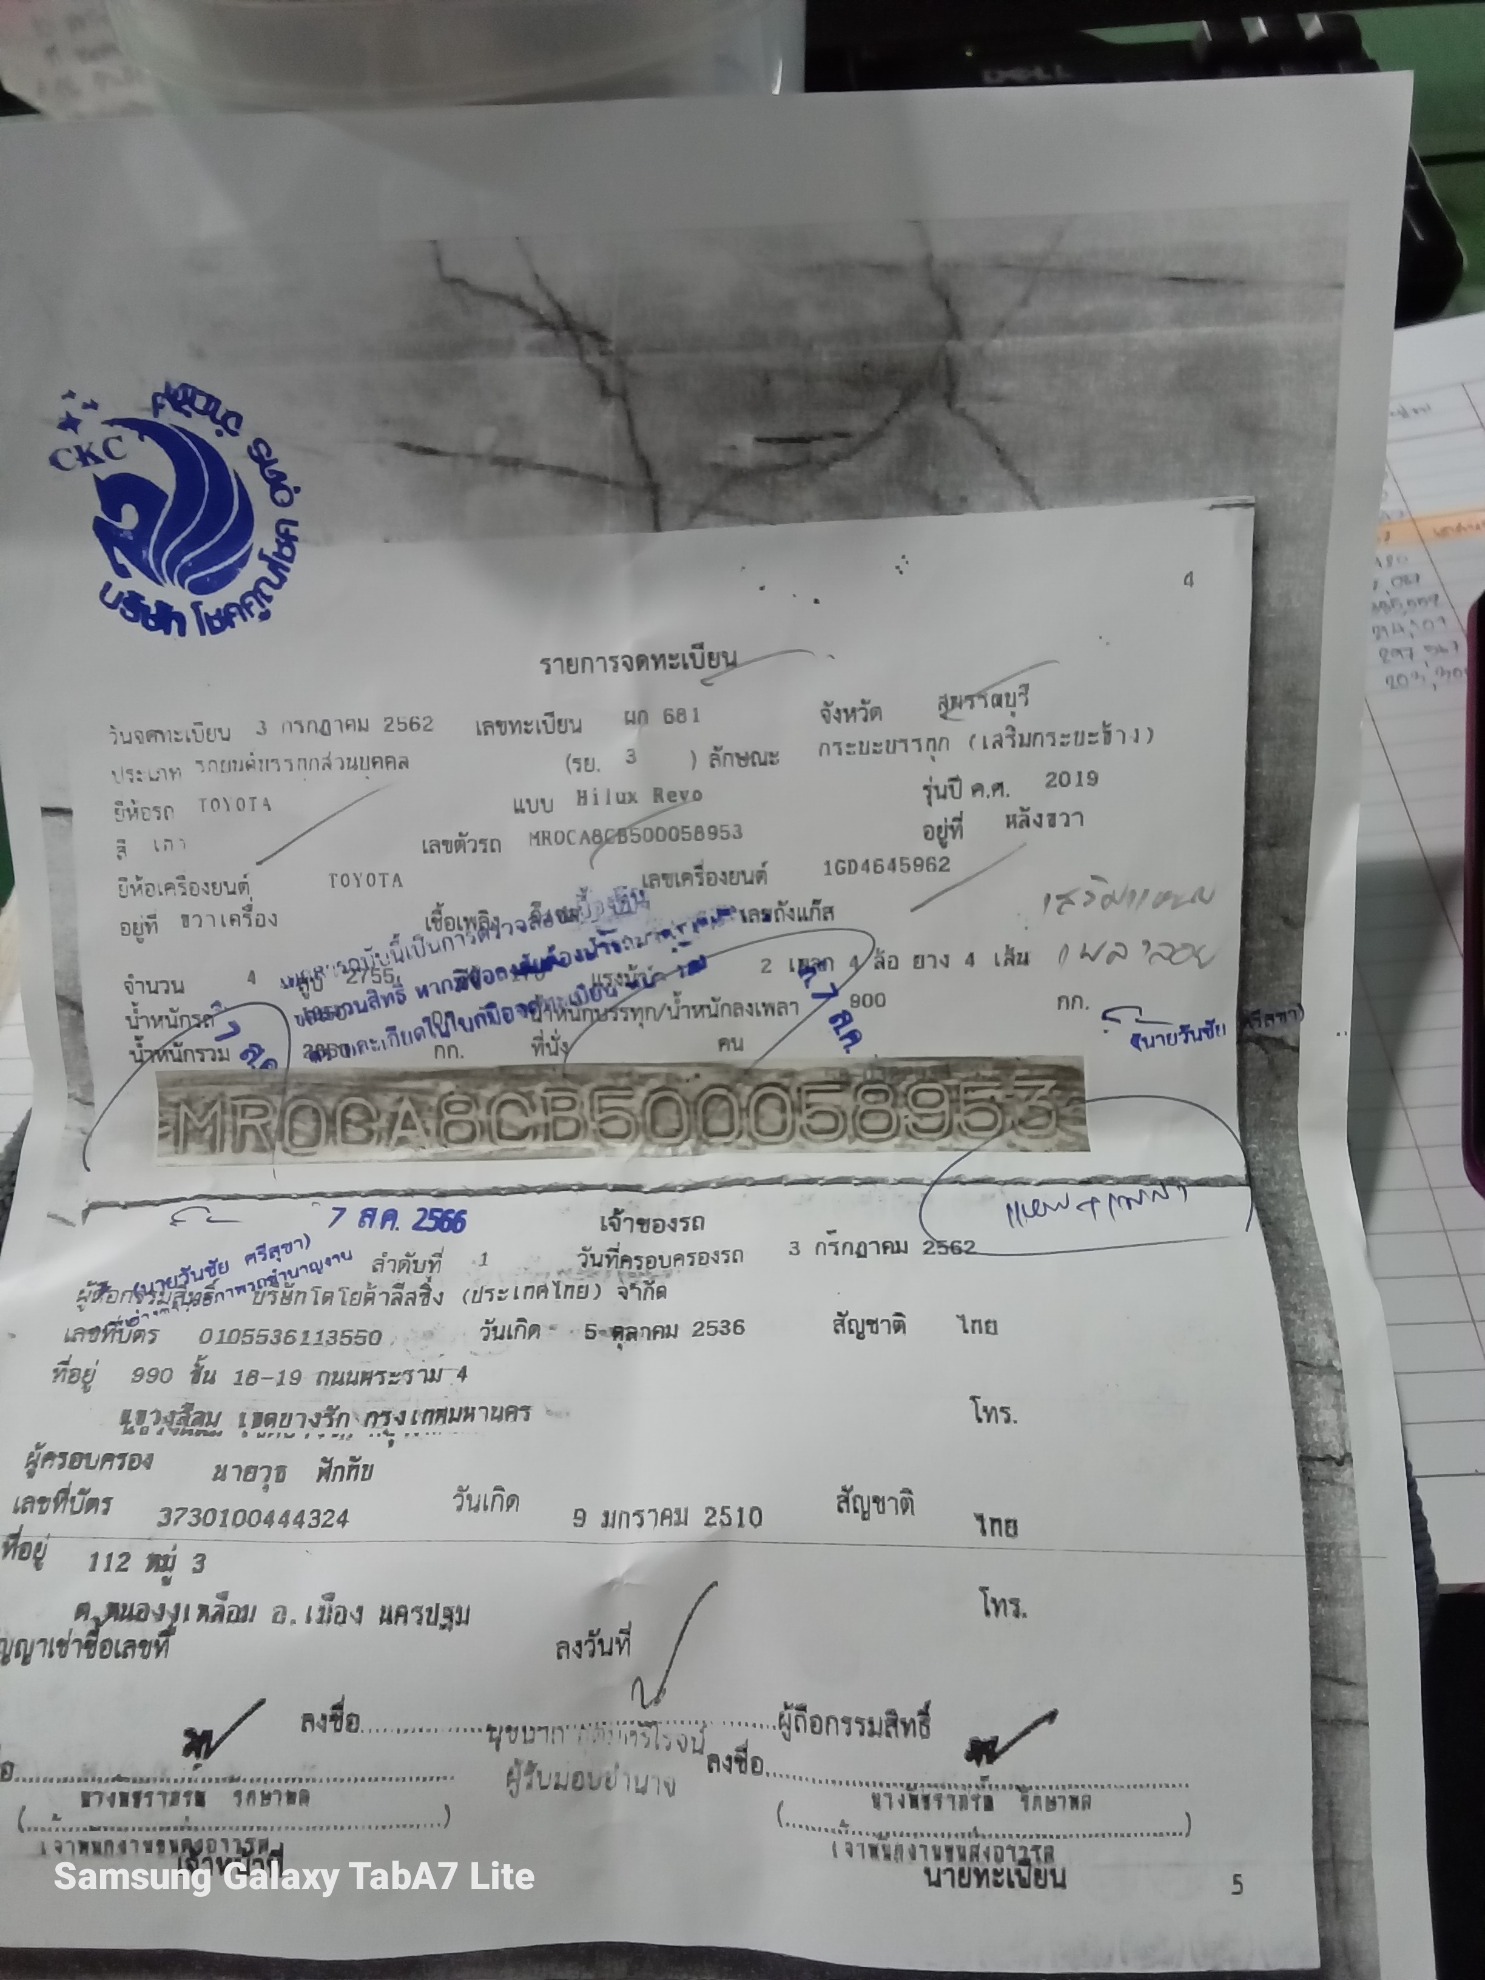 CKC
บริษัท โชคคูณโชค
จำกัด
4
รายการจดทะเบียน
วันจดทะเบียน 3 กรกฎาคม 2562 เลขทะเบียน ผก 681 จังหวัด สุพรรณบุรี
ประเภท รถยนต์บรรทุกส่วนบุคคล (รย. 3 ) ลักษณะ กระบะบรรทุก (เสริมกระบะข้าง)
ยี่ห้อรถ TOYOTA แบบ Hilux Revo รุ่นปี ค.ศ. 2019
สี เทา เลขตัวรถ MR0CA8CB500058953 อยู่ที่ หลังขวา
ยี่ห้อเครื่องยนต์ TOYOTA เลขเครื่องยนต์ 1GD4645962
อยู่ที่ ขวาเครื่อง เชื้อเพลิง ดีเซล เลขถังแก๊ส
เสริมแหนบ
จำนวน 4 สูบ 2755 แรงม้า 2 เพลา 4 ล้อ ยาง 4 เส้น
เพลาลอย
น้ำหนักรถ น้ำหนักบรรทุก/น้ำหนักลงเพลา 900 กก.
น้ำหนักรวม กก. ที่นั่ง คน
7 ส.ค.
7 ส.ค.
(นายวันชัย ศรีสุขา)
MR0CA8CB500058953
7 ส.ค. 2566 เจ้าของรถ
(นายวันชัย ศรีสุขา)
ลำดับที่ 1 วันที่ครอบครองรถ 3 กรกฎาคม 2562
ผู้ถือกรรมสิทธิ์ บริษัทโตโยต้าลีสซิ่ง (ประเทศไทย) จำกัด
เลขที่บัตร 0105536113550 วันเกิด 5 ตุลาคม 2536 สัญชาติ ไทย
ที่อยู่ 990 ชั้น 18-19 ถนนพระราม 4
แขวงสีลม เขตบางรัก กรุงเทพมหานคร โทร.
ผู้ครอบครอง นายวุธ ฟักทับ
เลขที่บัตร 3730100444324 วันเกิด 9 มกราคม 2510 สัญชาติ ไทย
ที่อยู่ 112 หมู่ 3
ต.หนองงูเหลือม อ.เมือง นครปฐม โทร.
ญญาเช่าซื้อเลขที่ ลงวันที่
ลงชื่อ ผู้ถือกรรมสิทธิ์
ผู้รับมอบอำนาจ
ลงชื่อ
นางพัชราภรณ์ รักษาพล นางพัชราภรณ์ รักษาพล
เจ้าพนักงานขนส่งอาวุโส เจ้าพนักงานขนส่งอาวุโส
เจ้าหน้าที่ นายทะเบียน
5
Samsung Galaxy TabA7 Lite